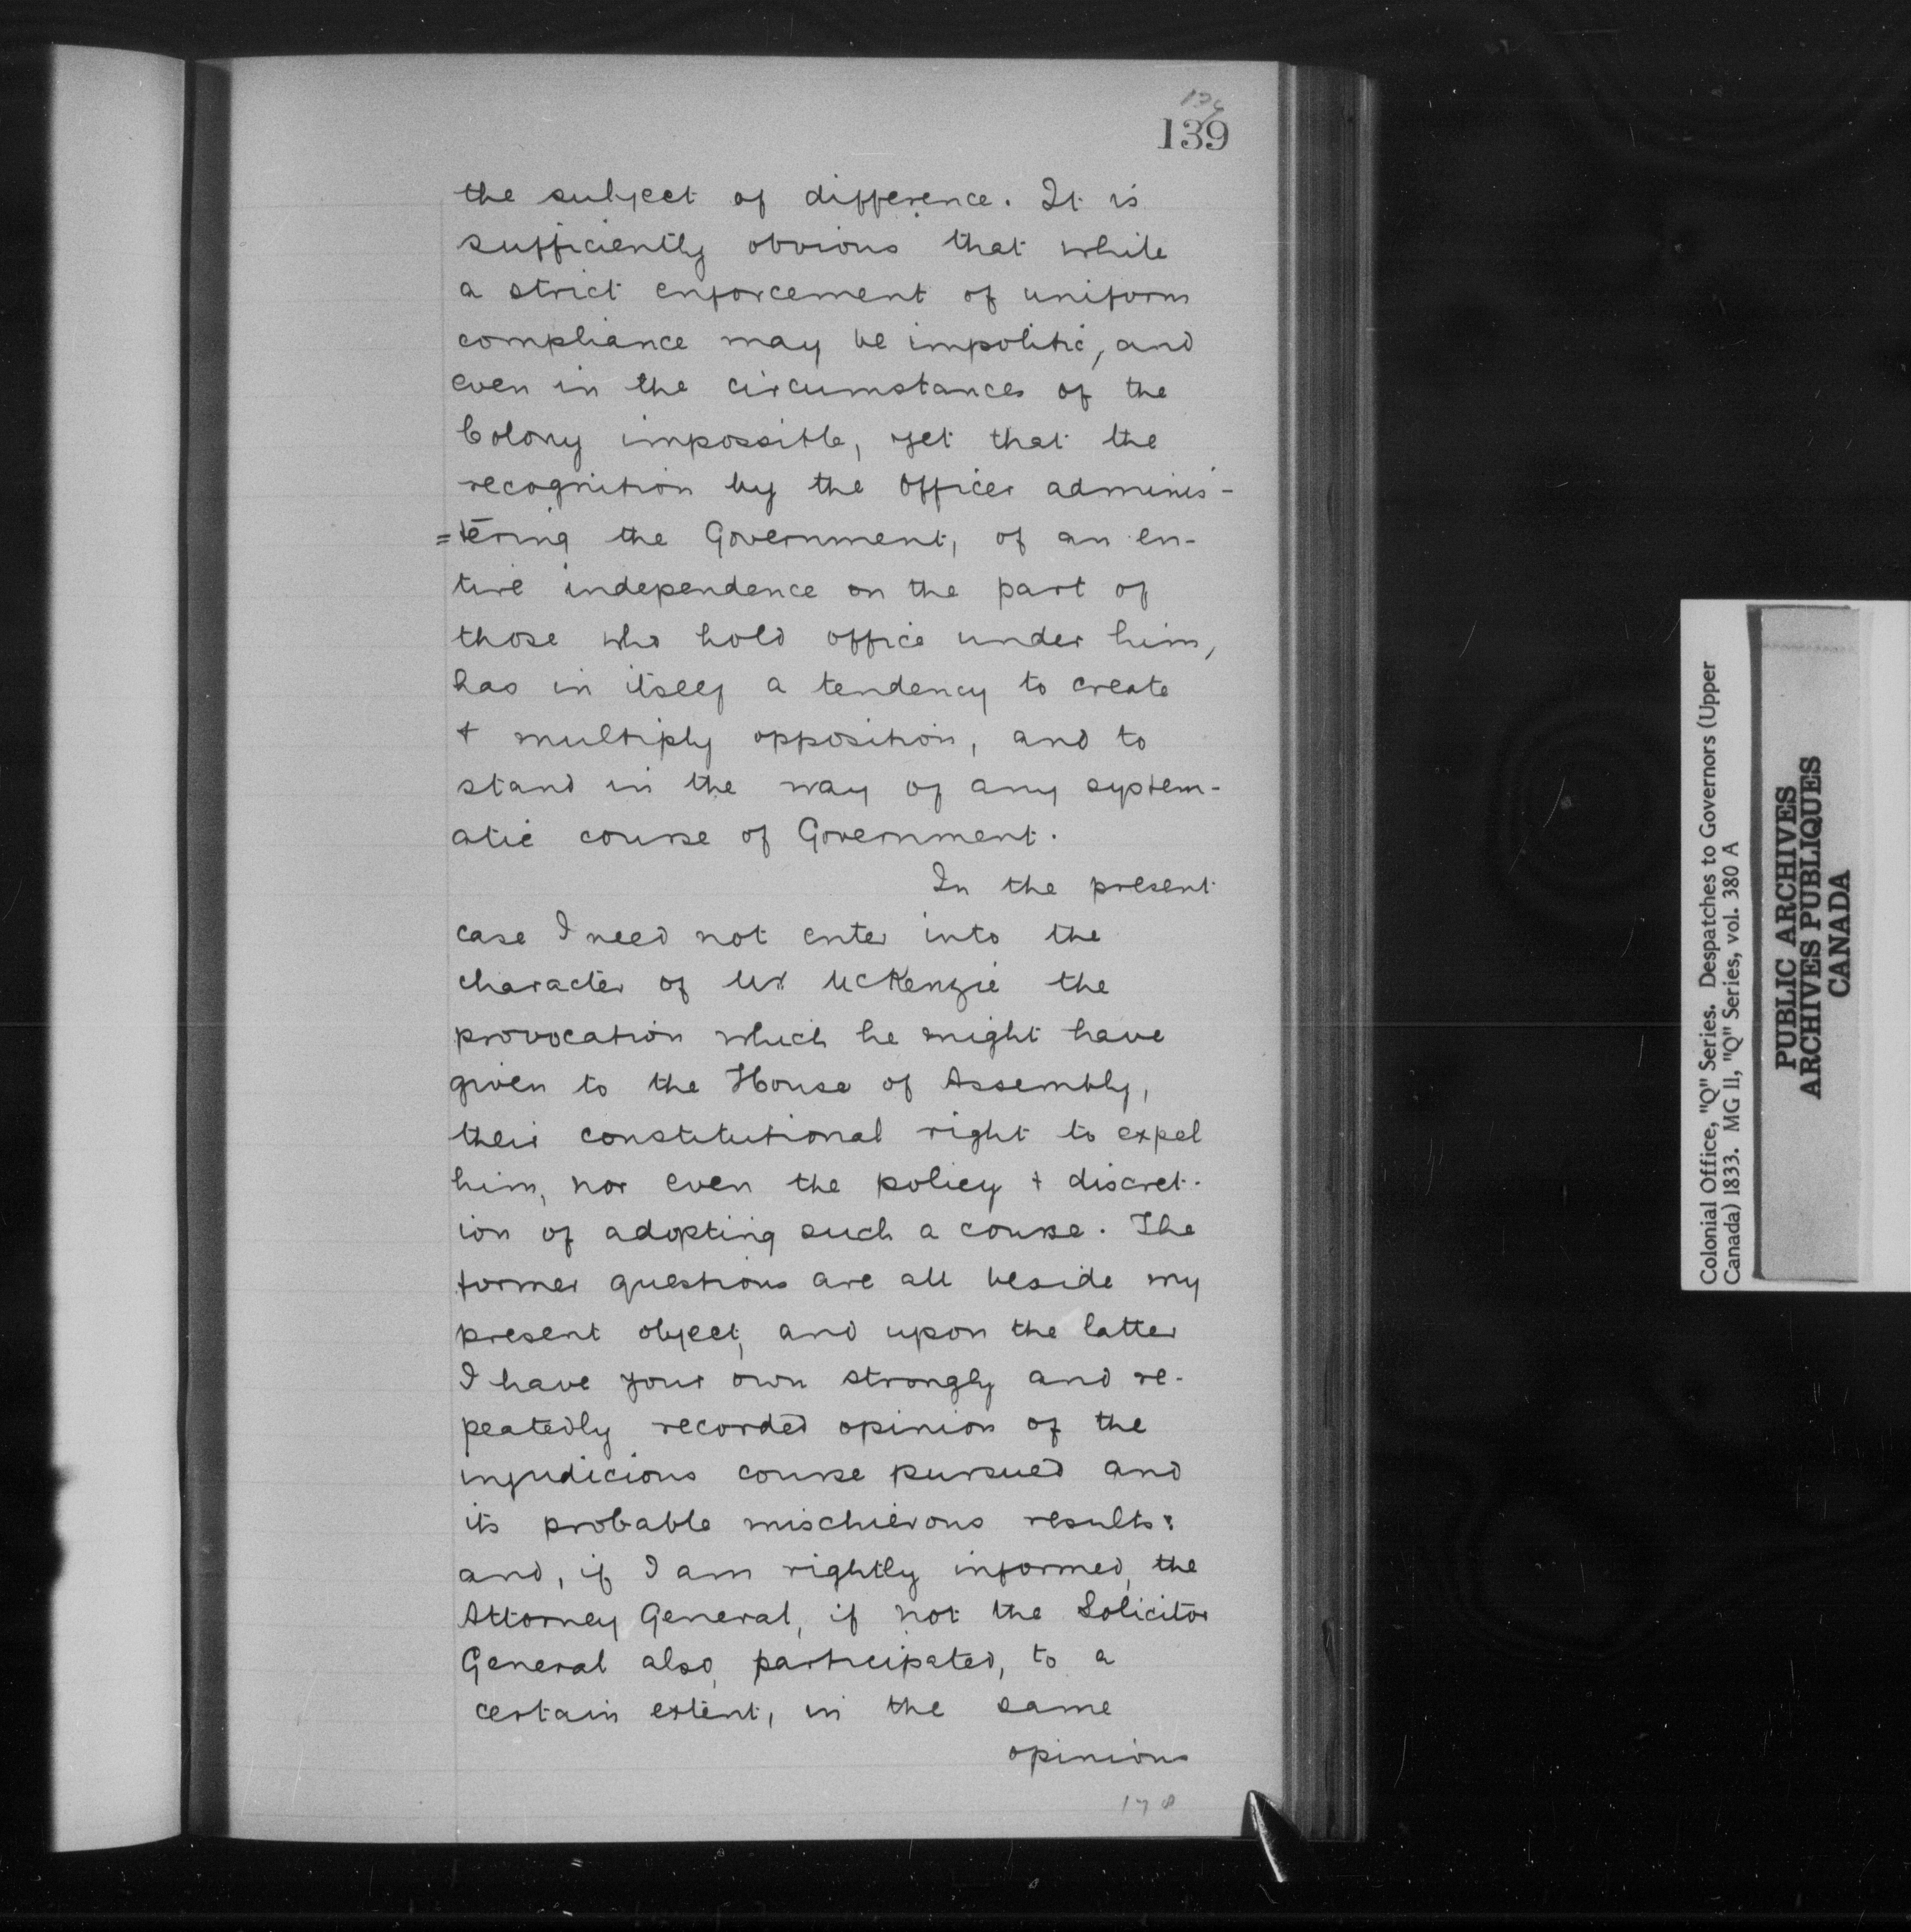 139
the subject of difference. It is
sufficiently obvious that while
a strict enforcement of uniform
compliance may be impolitic, and
even in the circumstances of the
Colony impossible, yet that the
recognition by the officer adminis-
=tering the Government, of an en-
tire independence on the part of
those who hold office under him,
has in itself a tendency to create
+ multiply opposition, and to
stand in the way of any system-
atic course of Government.
In the present
case I need not enter into the
character of Mr. McKenzie the
provocation which he might have
given to the House of Assembly,
their constitutional right to expel
him, nor even the policy + discret-
ion of adopting such a course. The
former questions are all beside my
present object, and upon the latter
I have your own strongly and re-
peatedly recorded opinion of the
injudicious course pursued and
its probable mischievous results:
and, if I am rightly informed, the
Attorney General, if not the Solicitor
General also, participated, to a
certain extent, in the same
opinions
178
Colonial Office, "Q" Series. Despatches to Governors (Upper
Canada) 1833. MG 11, "Q" Series, vol. 380 A
PUBLIC ARCHIVES
ARCHIVES PUBLIQUES
CANADA